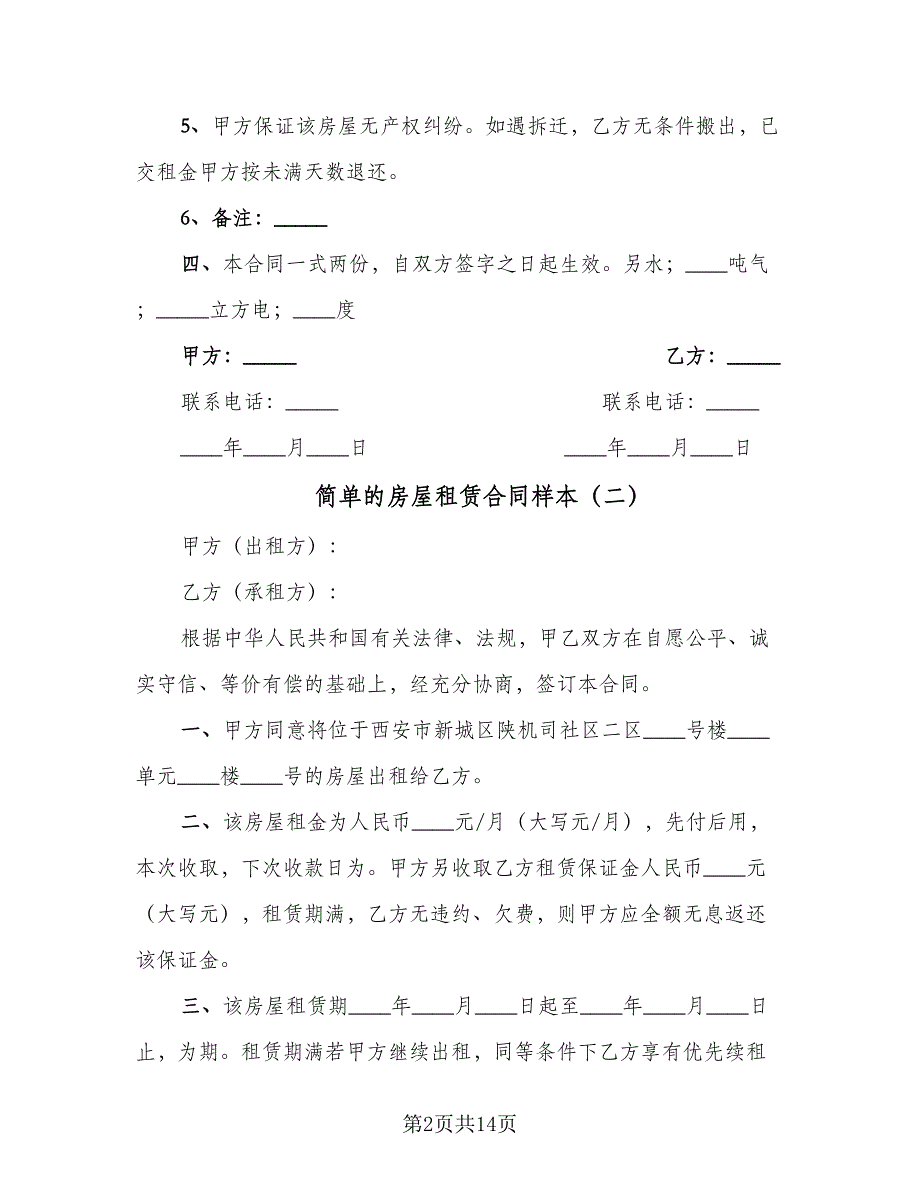 5、甲方保证该房屋无产权纠纷。如遇拆迁，乙方无条件搬出，已
交租金甲方按未满天数退还。
6、备注：_____
四、本合同一式两份，自双方签字之日起生效。另水；____吨气
；_____立方电；____度
甲方：_____ 乙方：_____
联系电话：_____ 联系电话：_____
____年____月____日 ____年____月____日
简单的房屋租赁合同样本（二）
甲方（出租方）：
乙方（承租方）：
根据中华人民共和国有关法律、法规，甲乙双方在自愿公平、诚
实守信、等价有偿的基础上，经充分协商，签订本合同。
一、甲方同意将位于西安市新城区陕机司社区二区____号楼____
单元____楼____号的房屋出租给乙方。
二、该房屋租金为人民币____元/月（大写元/月），先付后用，
本次收取，下次收款日为。甲方另收取乙方租赁保证金人民币____元
（大写元），租赁期满，乙方无违约、欠费，则甲方应全额无息返还
该保证金。
三、该房屋租赁期____年____月____日起至____年____月____日
止，为期。租赁期满若甲方继续出租，同等条件下乙方享有优先续租
第2页共14页